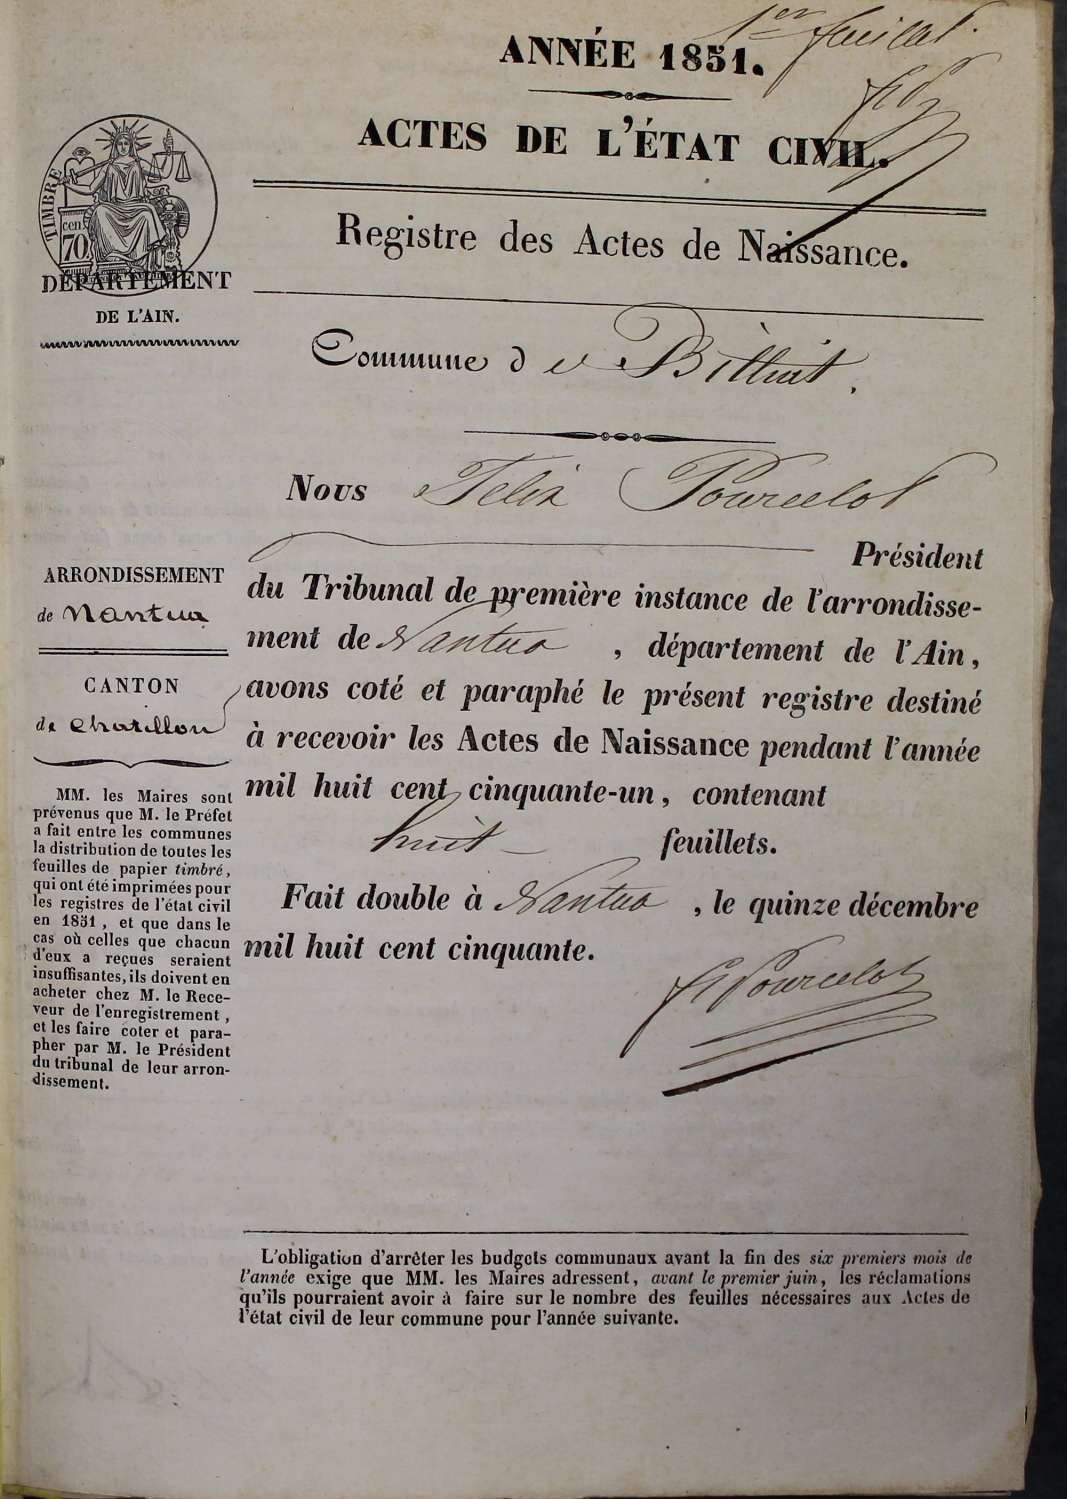 1er feuillet.
ANNÉE 1851.
ACTES DE L'ÉTAT CIVIL.
Registre des Actes de Naissance.
TIMBRE
70 cen
DÉPARTEMENT
DE L'AIN.
Commune de Billiat.
Nous Félix Pourcelot
Président
du Tribunal de première instance de l'arrondisse-
ment de Nantua, département de l'Ain,
avons coté et paraphé le présent registre destiné
à recevoir les Actes de Naissance pendant l'année
mil huit cent cinquante-un, contenant
huit feuillets.
Fait double à Nantua, le quinze décembre
mil huit cent cinquante.
Pourcelot
ARRONDISSEMENT
de Nantua
CANTON
de Chatillon
MM. les Maires sont
prévenus que M. le Préfet
a fait entre les communes
la distribution de toutes les
feuilles de papier timbré,
qui ont été imprimées pour
les registres de l'état civil
en 1851, et que dans le
cas où celles que chacun
d'eux a reçues seraient
insuffisantes, ils doivent en
acheter chez M. le Rece-
veur de l'enregistrement,
et les faire coter et para-
pher par M. le Président
du tribunal de leur arron-
dissement.
L'obligation d'arrêter les budgets communaux avant la fin des six premiers mois de
l'année exige que MM. les Maires adressent, avant le premier juin, les réclamations
qu'ils pourraient avoir à faire sur le nombre des feuilles nécessaires aux Actes de
l'état civil de leur commune pour l'année suivante.